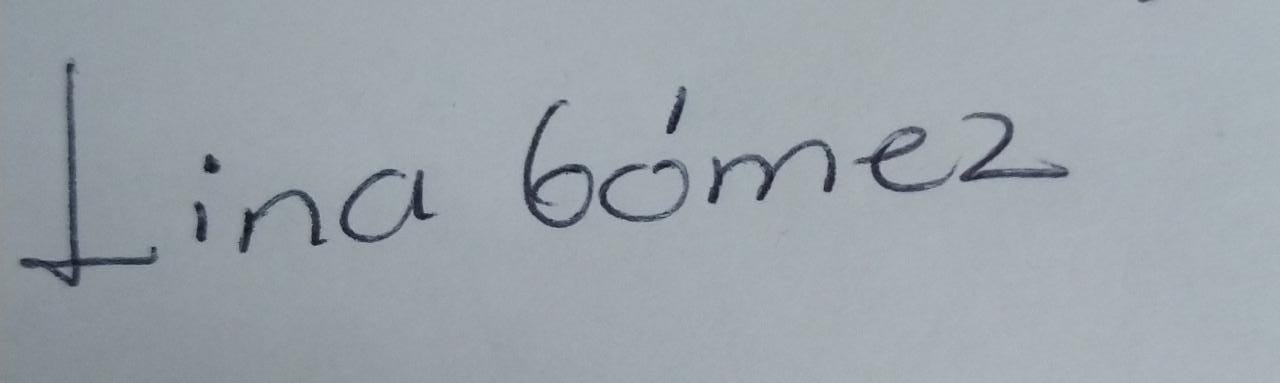 Lina Gómez